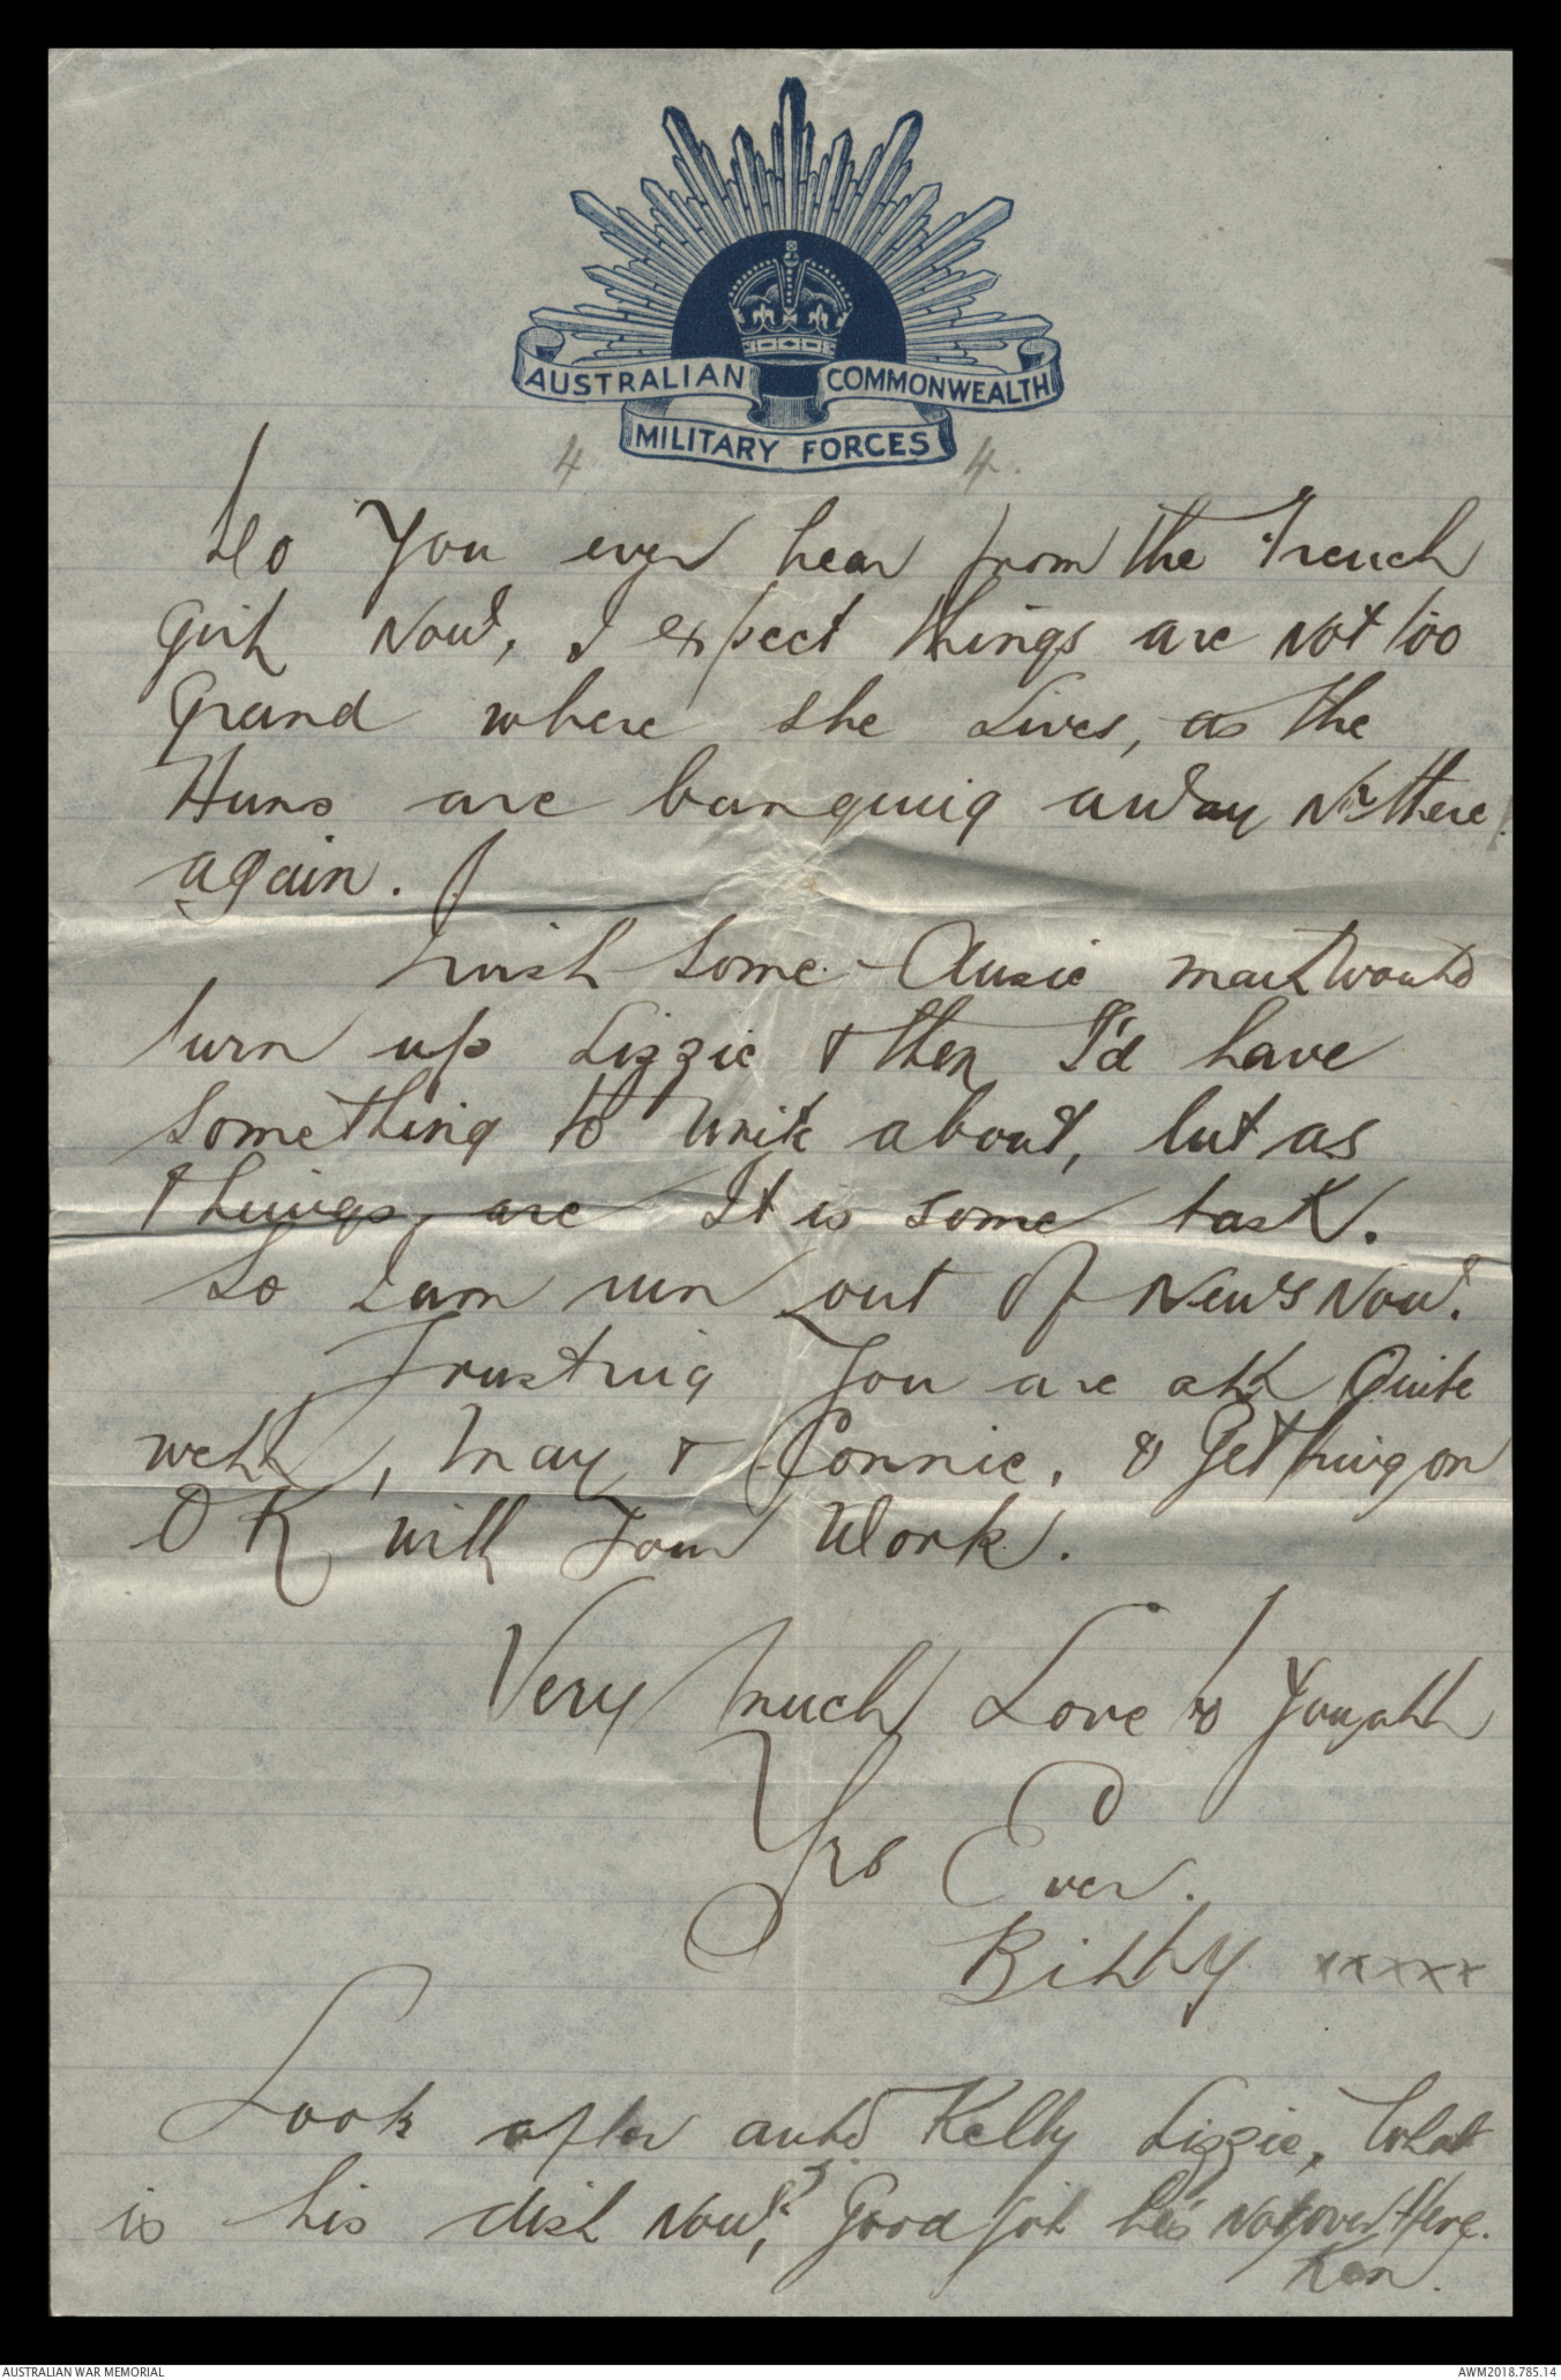 AUSTRALIAN COMMONWEALTH
MILITARY FORCES
4 4.
Do You ever hear from the French
Girl Now, I expect things are not too
Grand where she Lives, as the
Huns are banging away Nr there
again.
I wish some Ausie mail would
turn up Lizzie & then I'd have
something to write about, but as
things, are It is some task.
So I am run out of News Now.
Trusting You are all Quite
well, May & Connie, & Getting on
OK with Your Work.
Very Much Love to You all
Yrs Ever.
Billy xxxxx
Look after auld Kelly Lizzie, What
is his dish Now? Good job he's Not over Here.
AUSTRALIAN WAR MEMORIAL
AWM2018.785.14